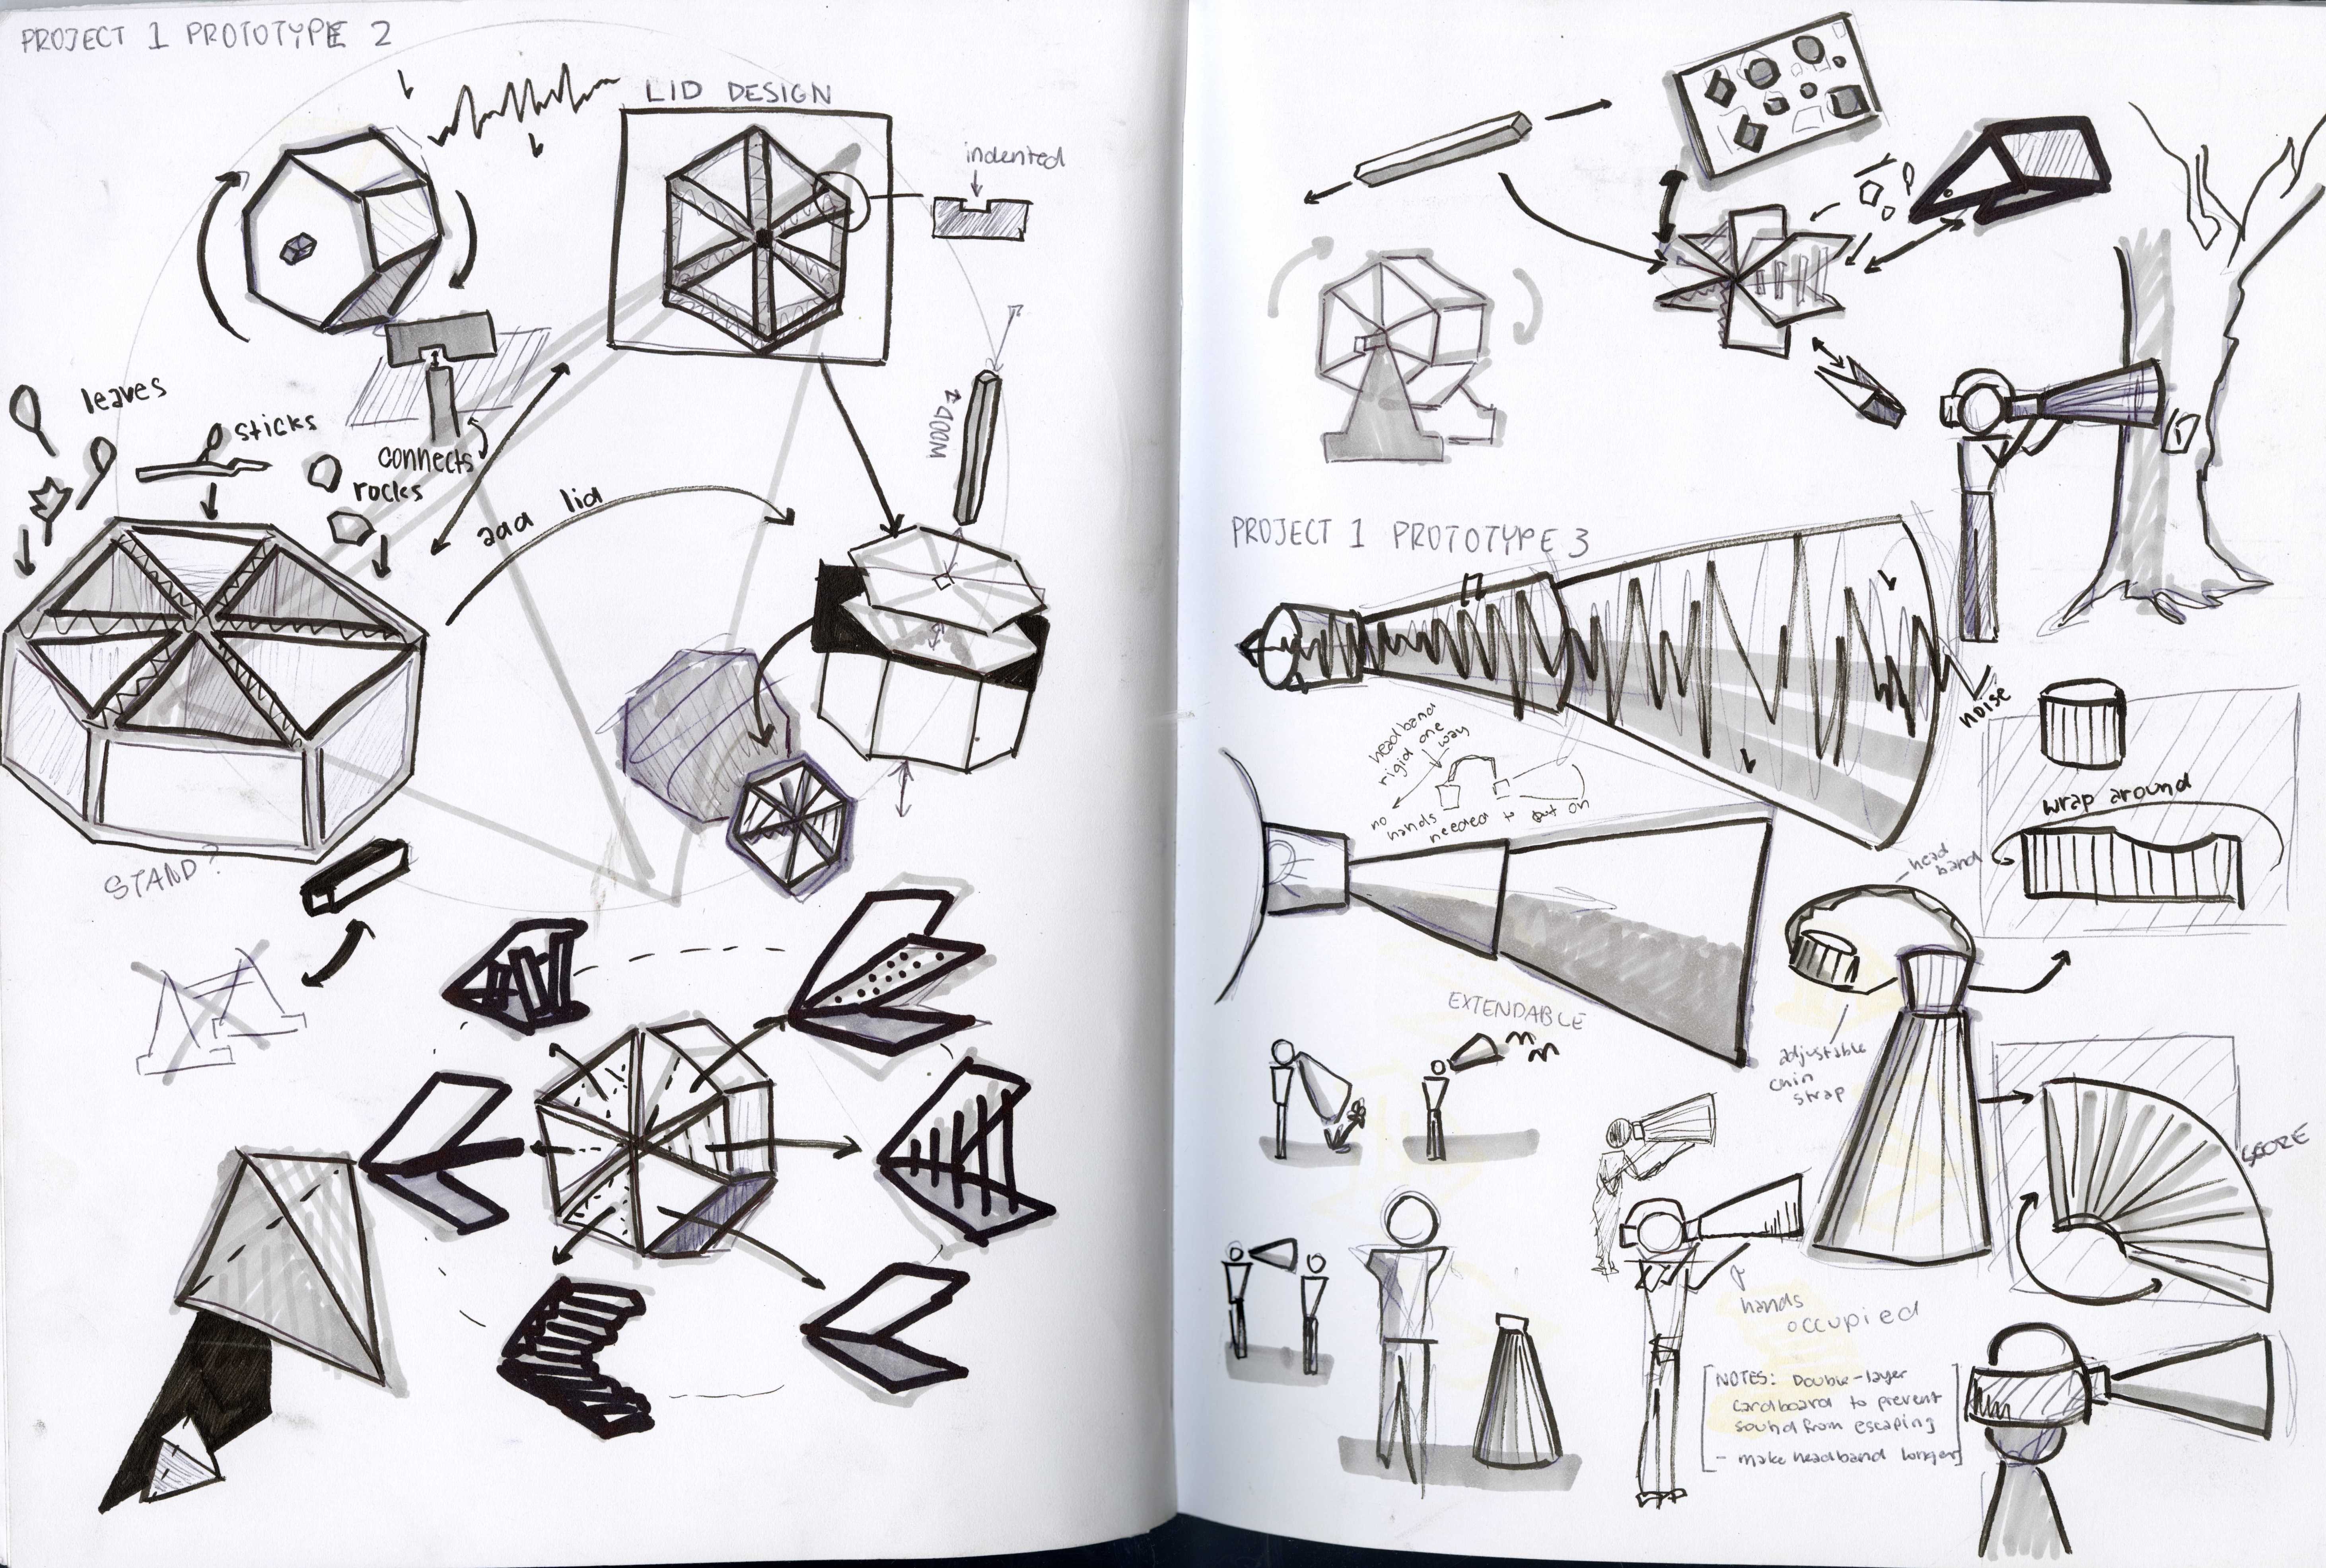 PROJECT 1 PROTOTYPE 2
LID DESIGN
indented
leaves
sticks
connects
rocks
add lid
WOOD
STAND?
PROJECT 1 PROTOTYPE 3
noise
headband
rigid one
way
no
hands
needed to put on
wrap around
head
band
EXTENDABLE
adjustable
chin
strap
SCORE
hands
occupied
NOTES: Double-layer
cardboard to prevent
sound from escaping
- make headband longer